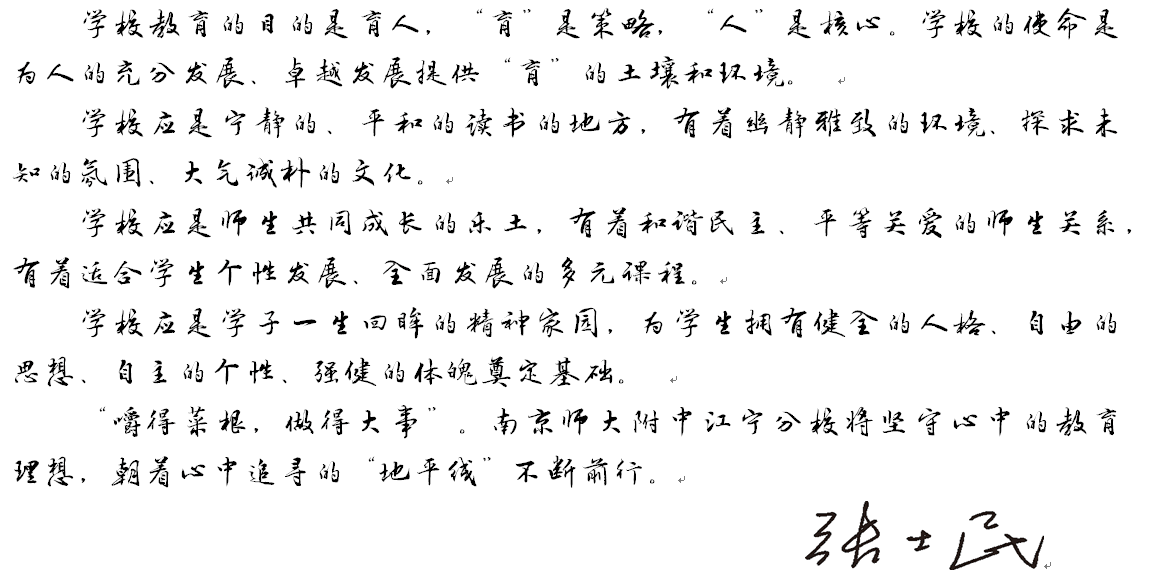 学校教育的目的是育人，“育”是策略，“人”是核心。学校的使命是
为人的充分发展、卓越发展提供“育”的土壤和环境。
学校应是宁静的、平和的读书的地方，有着幽静雅致的环境、探求未
知的氛围、大气诚朴的文化。
学校应是师生共同成长的乐土，有着和谐民主、平等关爱的师生关系，
有着适合学生个性发展、全面发展的多元课程。
学校应是学子一生回眸的精神家园，为学生拥有健全的人格、自由的
思想、自主的个性、强健的体魄奠定基础。
“嚼得菜根，做得大事”。南京师大附中江宁分校将坚守心中的教育
理想，朝着心中追寻的“地平线”不断前行。
张士民